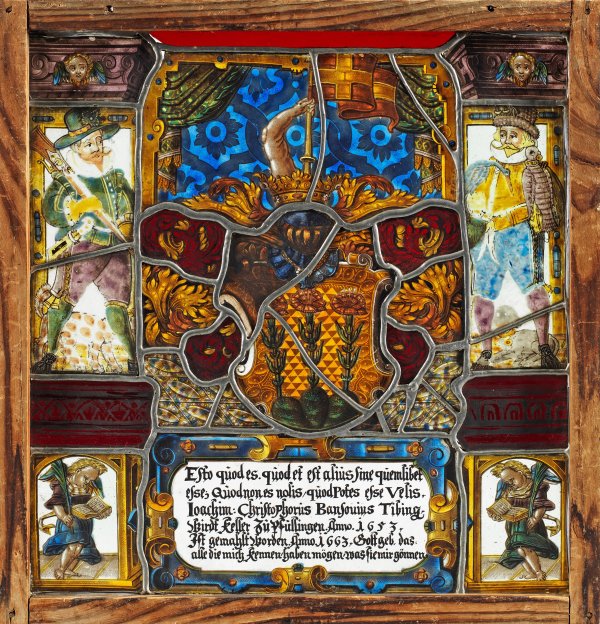 Esto quod es. quod et est alius sine quemlibet
esse, Quod non es nolis. quod Potes esse Velis.
Ioachim: Christophorus Bansouius Tibing.
Wirdt Keller Zu Pfullingen Anno. 1653.
Ist gemahlt worden Anno. 1663. Gott geb. das
alle die mich kennen haben mögen was sie mir gönnen